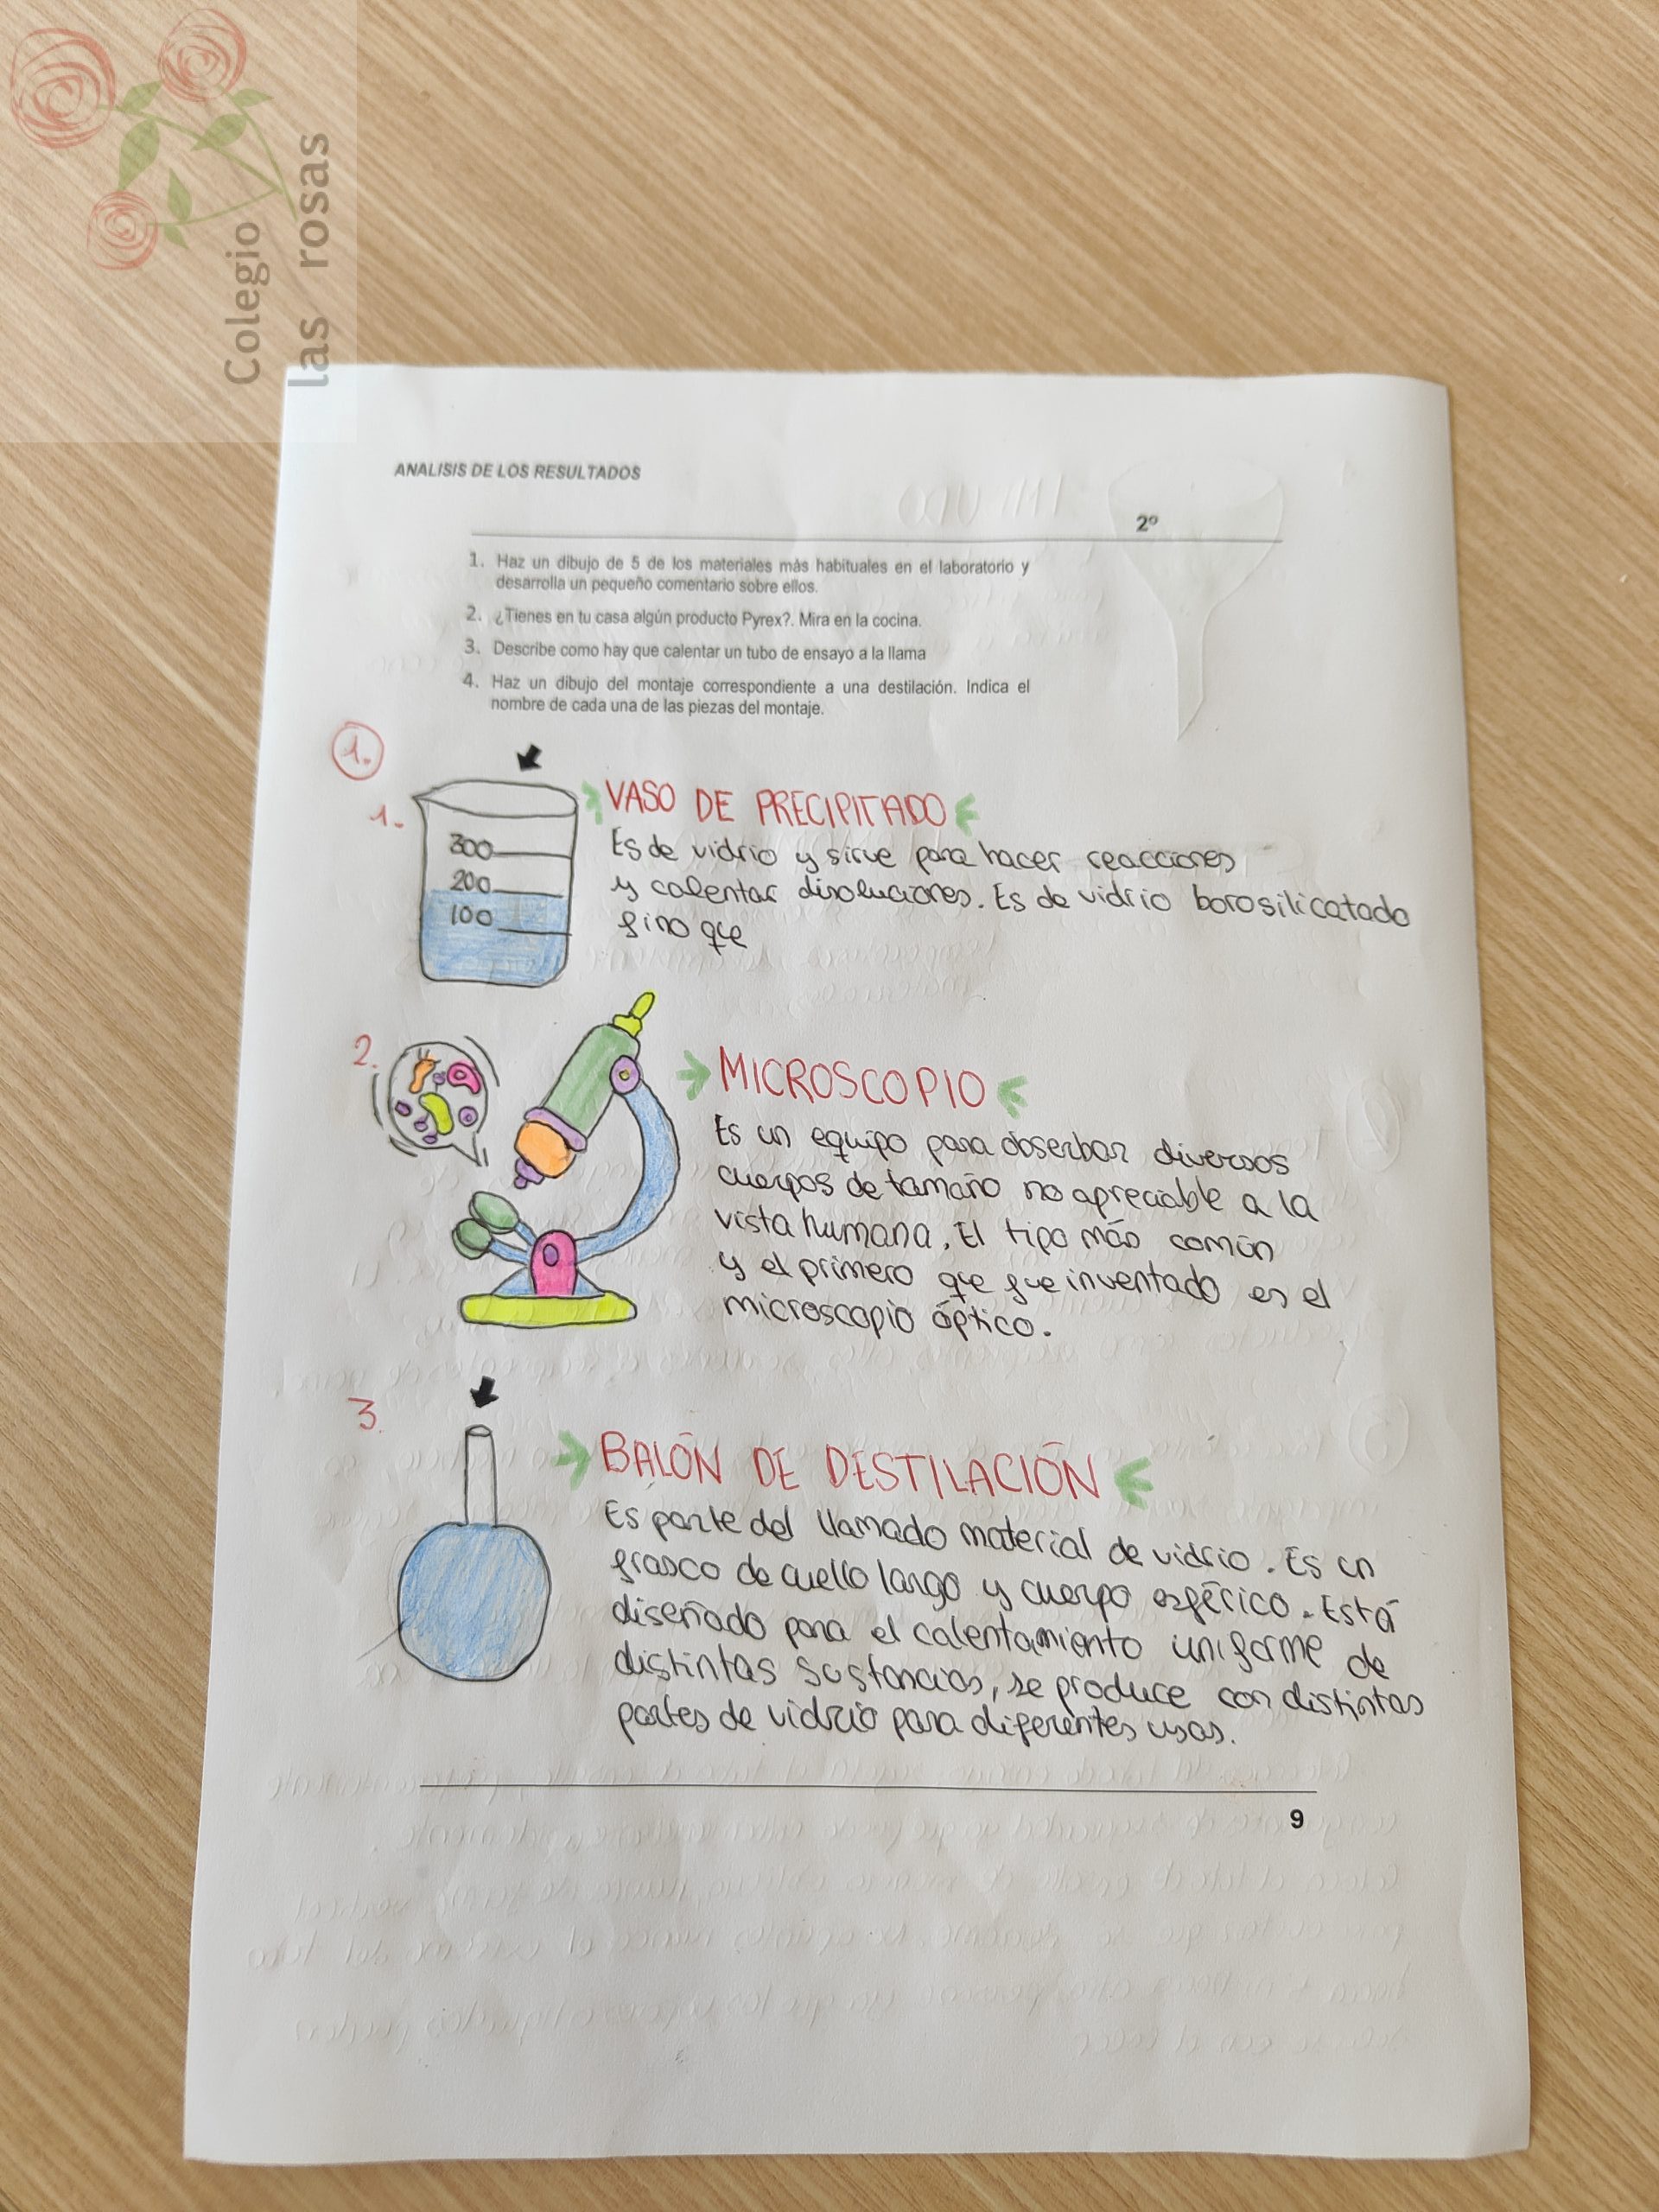 Colegio
las rosas
ANALISIS DE LOS RESULTADOS
2º
1. Haz un dibujo de 5 de los materiales más habituales en el laboratorio y
desarrolla un pequeño comentario sobre ellos.
2. ¿Tienes en tu casa algún producto Pyrex?. Mira en la cocina.
3. Describe como hay que calentar un tubo de ensayo a la llama
4. Haz un dibujo del montaje correspondiente a una destilación. Indica el
nombre de cada una de las piezas del montaje.
1.
1.
300
200
100
VASO DE PRECIPITADO
Es de vidrio y sirve para hacer reacciones
y calentar disoluciones. Es de vidrio borosilicatado
fino que
2.
MICROSCOPIO
Es un equipo para obserbar diversos
cuerpos de tamaño no apreciable a la
vista humana. El tipo más común
y el primero que fue inventado es el
microscopio óptico.
3.
BALÓN DE DESTILACIÓN
Es parte del llamado material de vidrio. Es un
frasco de cuello largo y cuerpo esférico. Está
diseñado para el calentamiento uniforme de
distintas sustancias, se produce con distintas
partes de vidrio para diferentes usos.
9